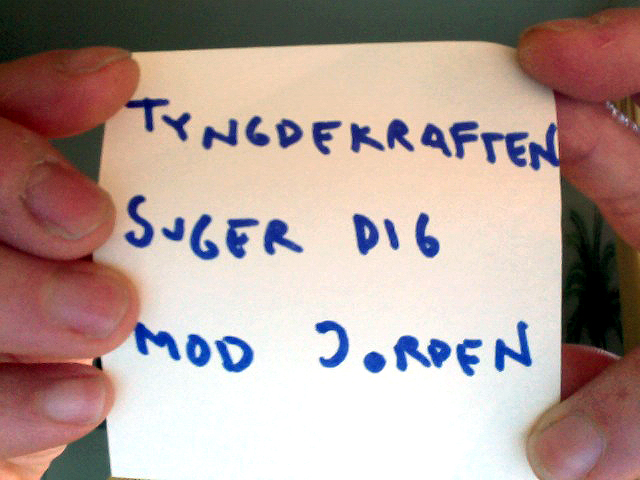 TYNGDEKRAFTEN
SUGER DIG
MOD JORDEN